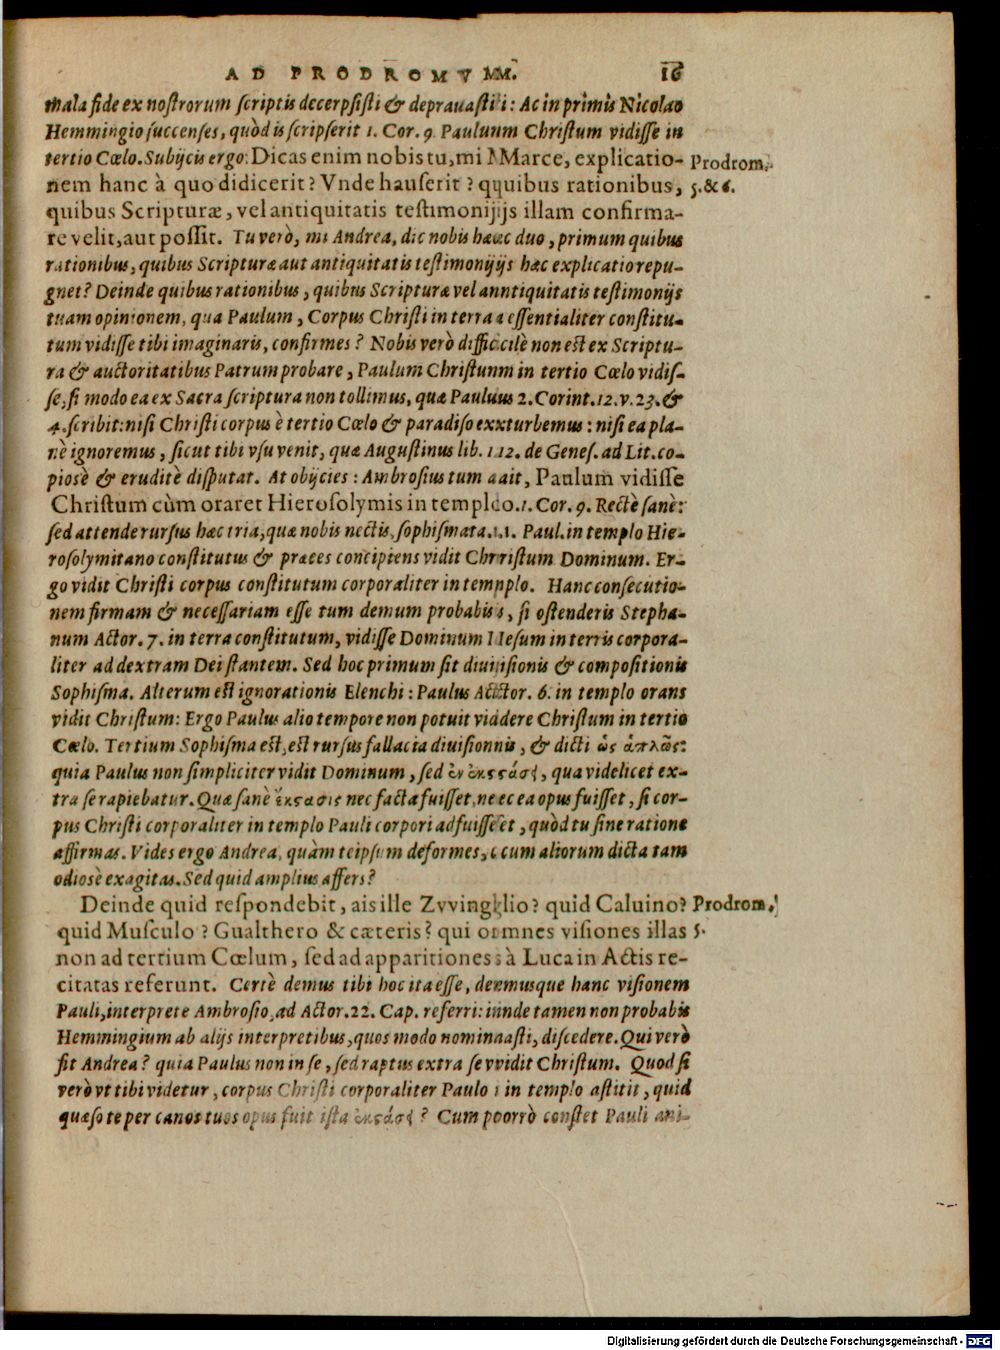 AD PRODROMVM. 16
mala fide ex nostrorum scriptis decerpsisti & deprauasti: Ac in primis Nicolao
Hemmingio succenses, quòd is scripserit 1. Cor. 9. Paulum Christum vidisse in
tertio Cœlo. Subijcis ergo: Dicas enim nobis tu, mi Marce, explicatio-
Prodrom.
nem hanc à quo didicerit? Vnde hauserit? quibus rationibus,
5. & 6.
quibus Scripturæ, vel antiquitatis testimonijs illam confirma-
re velit, aut possit. Tu verò, mi Andrea, dic nobis hæc duo, primum quibus
rationibus, quibus Scripturæ aut antiquitatis testimonijs hæc explicatio repu-
gnet? Deinde quibus rationibus, quibus Scripturæ vel antiquitatis testimonijs
tuam opinionem, qua Paulum, Corpus Christi in terra essentialiter constitu-
tum vidisse tibi imaginaris, confirmes? Nobis verò difficile non est ex Scriptu-
ra & auctoritatibus Patrum probare, Paulum Christum in tertio Cœlo vidis-
se, si modo ea ex Sacra scriptura non tollimus, quæ Paulus 2. Corint. 12. v. 23. &
4. scribit: nisi Christi corpus è tertio Cœlo & paradiso exturbemus: nisi ea pla-
nè ignoremus, sicut tibi vsu venit, quæ Augustinus lib. 12. de Genes. ad Lit. co-
piosè & eruditè disputat. At obijcies: Ambrosius tum ait, Paulum vidisse
Christum cùm oraret Hierosolymis in templo. 1. Cor. 9. Rectè sanè:
sed attende rursus hæc tria, quæ nobis nectis, sophismata. 1. Paul. in templo Hie-
rosolymitano constitutus & præces concipiens vidit Christum Dominum. Er-
go vidit Christi corpus constitutum corporaliter in templo. Hanc consecutio-
nem firmam & necessariam esse tum demum probabis, si ostenderis Stepha-
num Actor. 7. in terra constitutum, vidisse Dominum Iesum in terris corpora-
liter ad dextram Dei stantem. Sed hoc primum sit diuisionis & compositionis
Sophisma. Alterum est ignorationis Elenchi: Paulus Actor. 6. in templo orans
vidit Christum: Ergo Paulus alio tempore non potuit videre Christum in tertio
Cœlo. Tertium Sophisma est, est rursus fallacia diuisionis, & dicti ὡς ἁπλῶς:
quia Paulus non simpliciter vidit Dominum, sed ἐν ἐκστάσει, qua videlicet ex-
tra se rapiebatur. Quæ sanè ἔκστασις nec facta fuisset, nec ea opus fuisset, si cor-
pus Christi corporaliter in templo Pauli corpori adfuisset, quòd tu sine ratione
affirmas. Vides ergo Andrea, quàm teipsum deformes, cum aliorum dicta tam
odiosè exagitas. Sed quid amplius affers?
Deinde quid respondebit, ais ille Zvvinglio? quid Caluino?
Prodrom.
quid Musculo? Gualthero & cæteris? qui omnes visiones illas
5.
non ad tertium Cœlum, sed ad apparitiones à Luca in Actis re-
citatas referunt. Certè demus tibi hoc ita esse, demusque hanc visionem
Pauli, interprete Ambrosio, ad Actor. 22. Cap. referri: inde tamen non probabis
Hemmingium ab alijs interpretibus, quos modo nominasti, discedere. Qui verò
sit Andrea? quia Paulus non in se, sed raptus extra se vidit Christum. Quod si
verò vt tibi videtur, corpus Christi corporaliter Paulo in templo astitit, quid
quæso te per canos tuos opus fuit ista ἐκστάσει? Cum porrò constet Pauli ani-
Digitalisierung gefördert durch die Deutsche Forschungsgemeinschaft - DFG